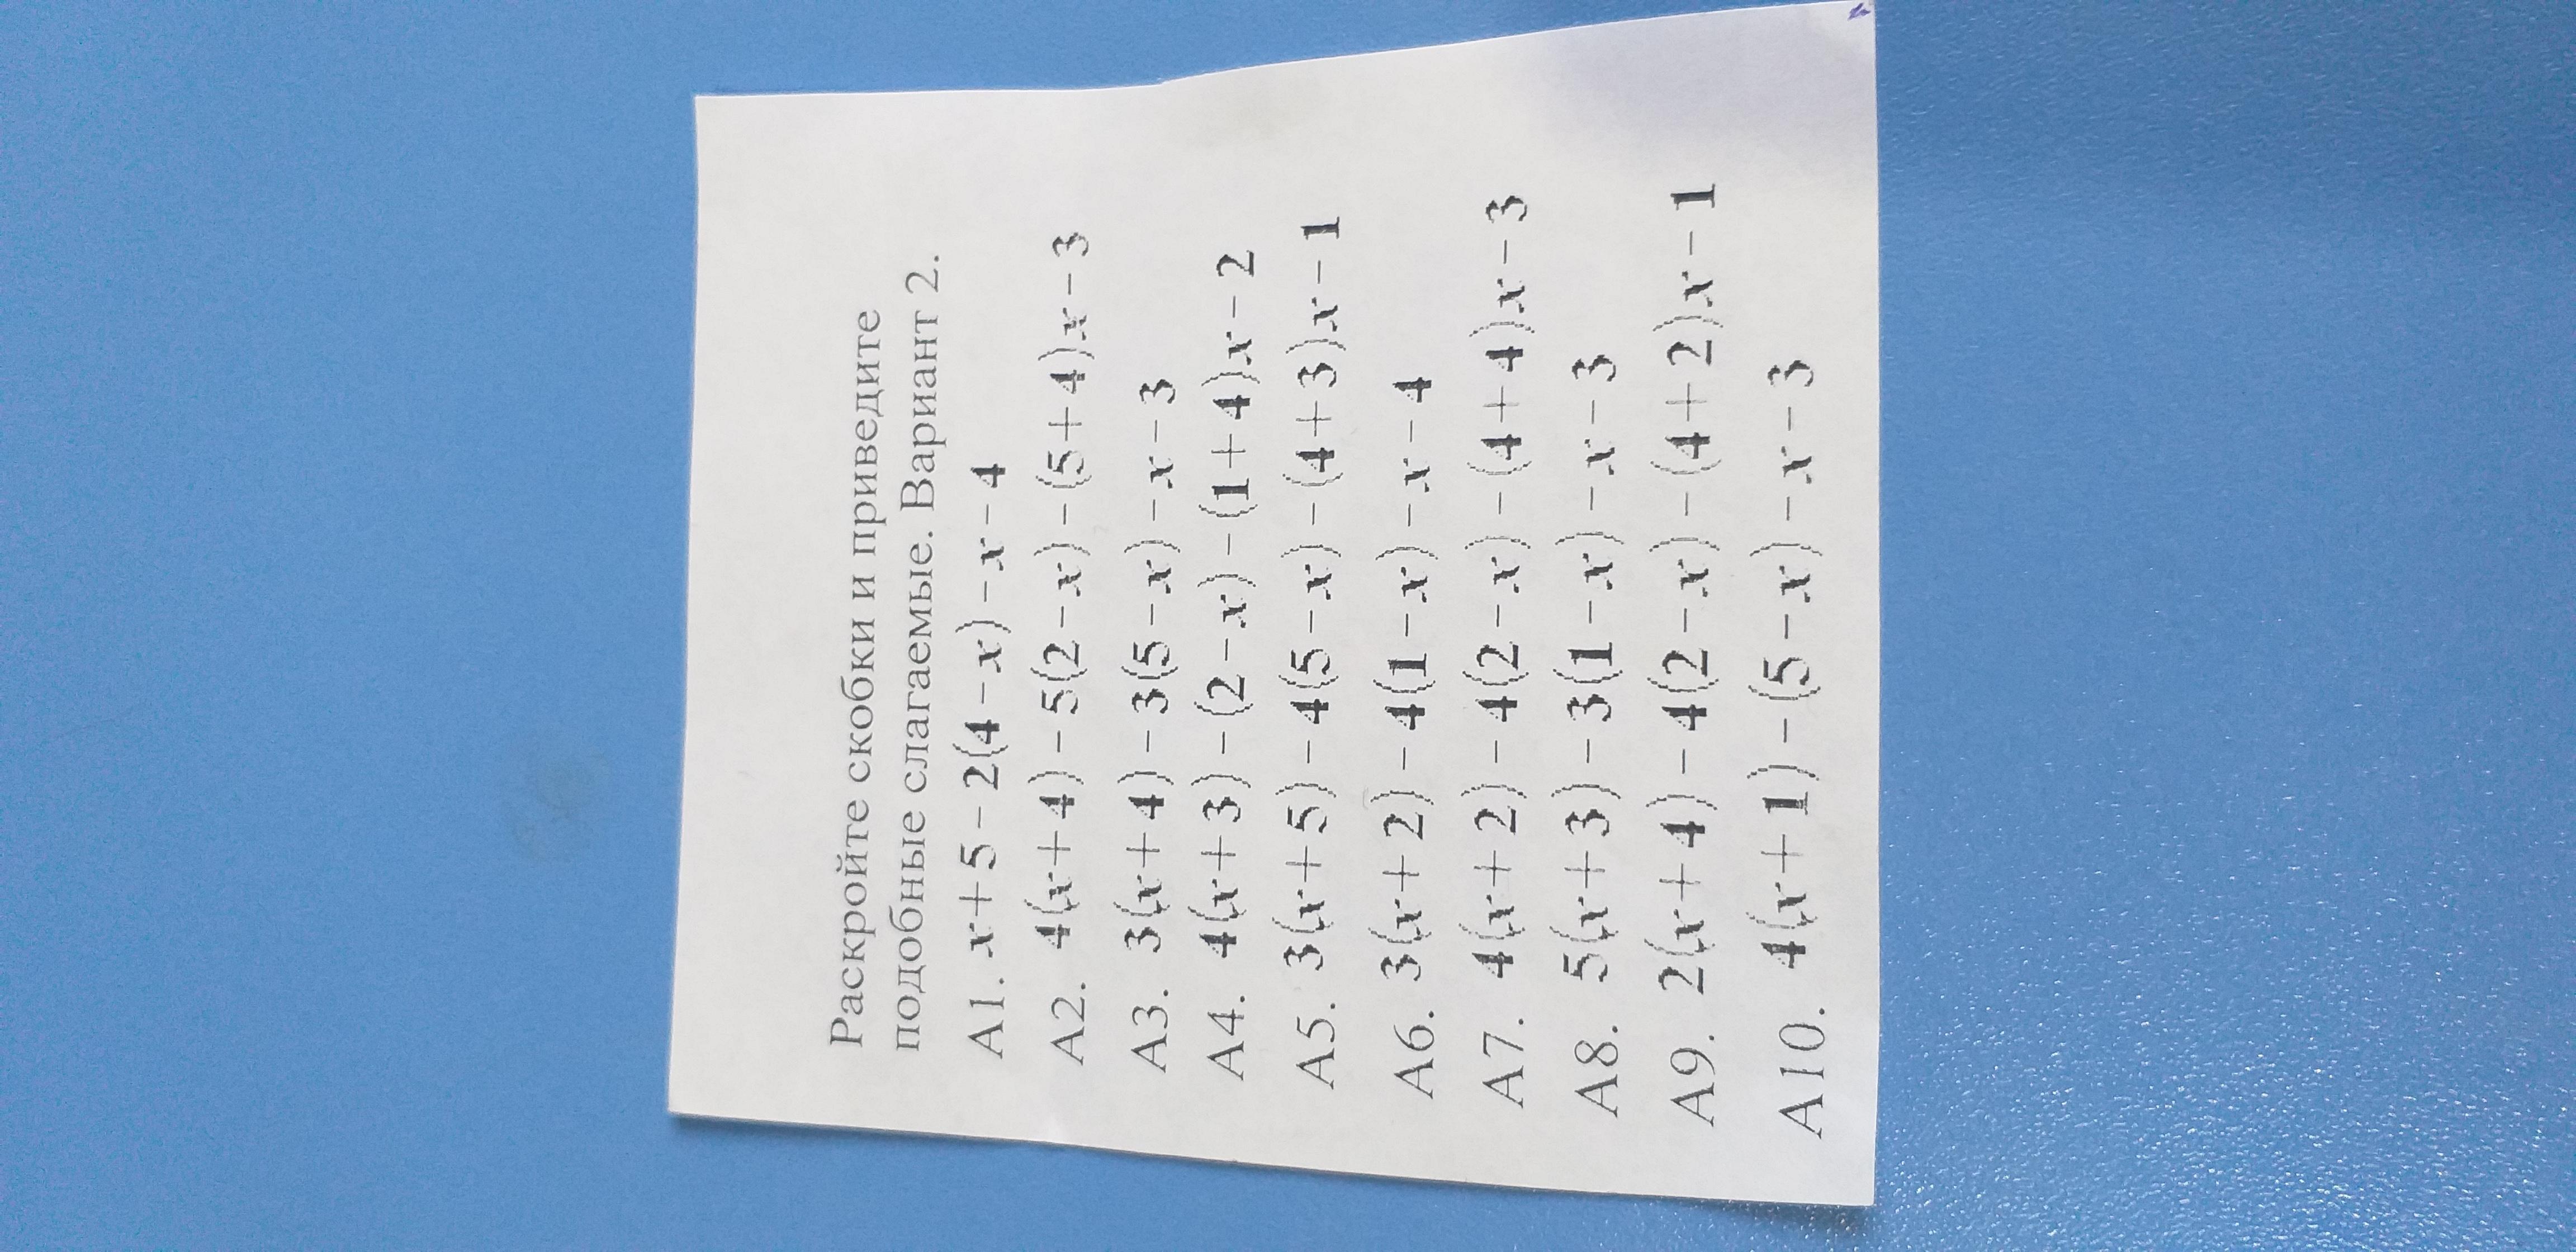 Раскройте скобки и приведите
подобные слагаемые. Вариант 2.
А1. x+5−2(4−x)−x−4
А2. 4(x+4)−5(2−x)−(5+4)x−3
А3. 3(x+4)−3(5−x)−x−3
А4. 4(x+3)−(2−x)−(1+4)x−2
А5. 3(x+5)−4(5−x)−(4+3)x−1
А6. 3(x+2)−4(1−x)−x−4
А7. 4(x+2)−4(2−x)−(4+4)x−3
А8. 5(x+3)−3(1−x)−x−3
А9. 2(x+4)−4(2−x)−(4+2)x−1
А10. 4(x+1)−(5−x)−x−3